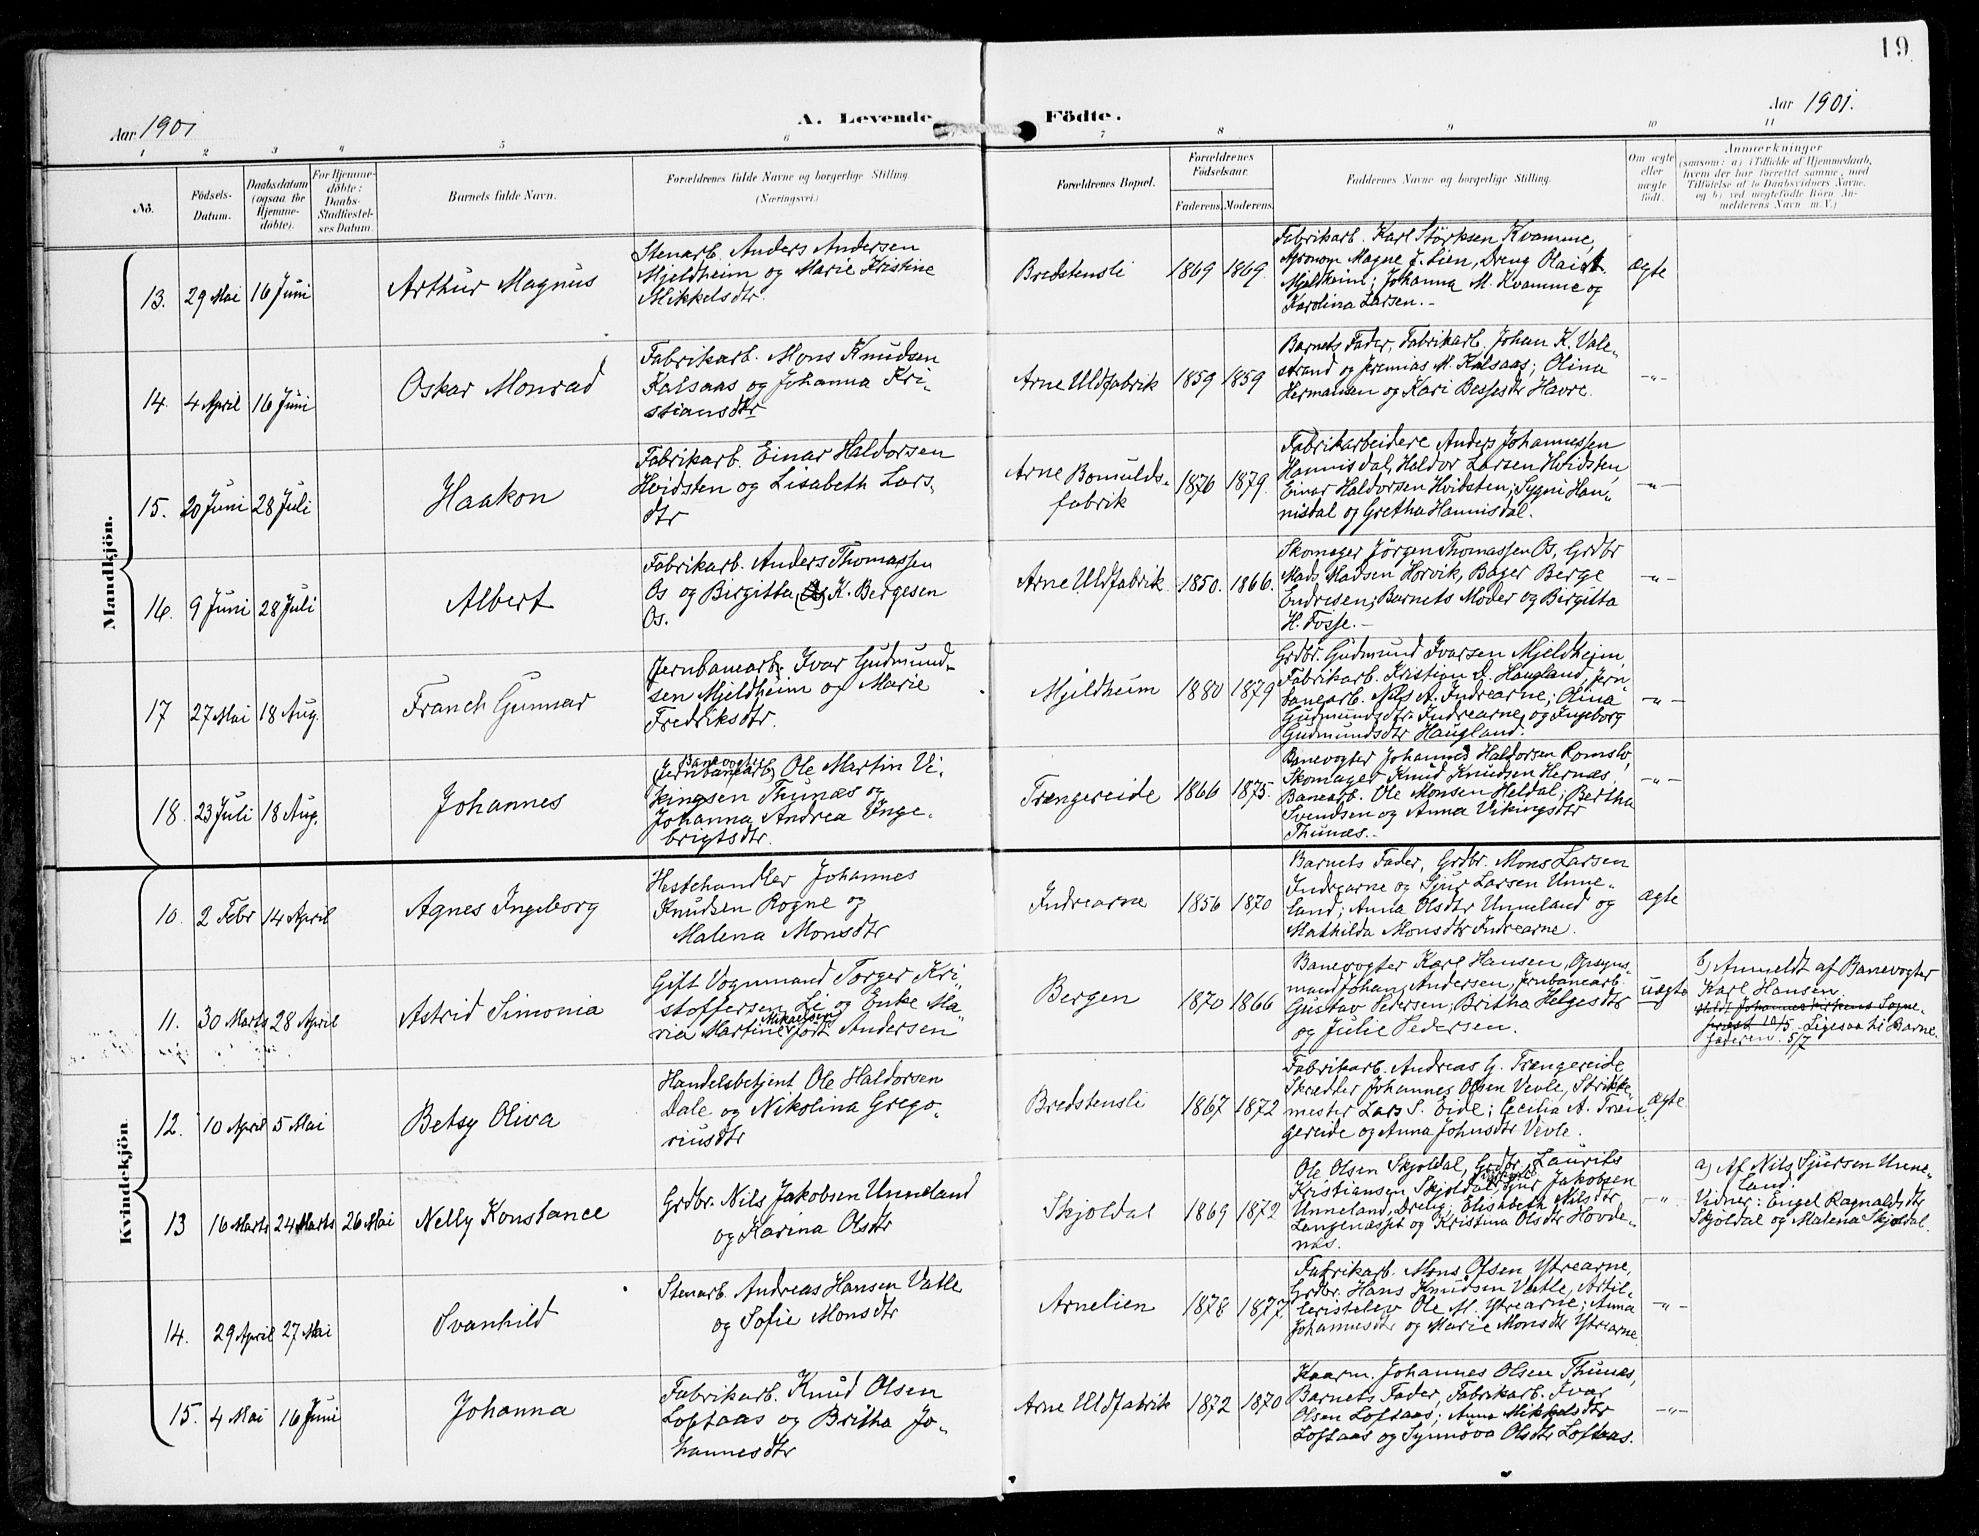 19
Aar 1901
A. Levende Födte.
Aar 1901.
1 2 3 4 5 6 7 8 9 10 11
No.
Födsels-Datum.
Daabsdatum (ogsaa for Hjemme-döbte).
For Hjemme-döbte: Daabs-Stadfæstel-ses Datum.
Barnets fulde Navn.
Forældrenes fulde Navne og borgerlige Stilling.
(Næringsvei.)
Forældrenes Bopæl.
Forældrenes Födselsaar.
Faderens. Moderens.
Faddernes Navne og borgerlige Stilling.
Om ægte eller uægte födt.
Anmærkninger
(saasom: a) i Tilfælde af Hjemmedaab,
hvem der har forrettet samme, med
Tilföielse af to Daabsvidners Navne,
og b) ved uægtefödte Börn An-
melderens Navn m. V.)
Mandkjön.
13. 29 Mai 16 Juni
Arthur Magnus
Stenarb. Anders Andersen
Mjeldheim og Marie Kristine
Mikkelsdtr.
Bredstensli 1869 1869.
Fabrikarb. Karl Størksen Kvamme,
Agronom Magne J. Lien, Dreng Olai
Mjeldheim; Johanna M. Kvamme og
Karolina Larsen.-
Ægte
14. 4 April 16 Juni
Oskar Monrad
Fabrikarb. Mons Knudsen
Kalsaas og Johanna Kri-
stiansdtr
Arne Uldfabrik 1859 1859
Barnets Fader, Fabrikarb. Johan K. Vale-
strand og Jremias M. Kalsaas; Olina
Hermansen og Kari Bessesdtr Havre.
-"-
15. 20 Juni 28 Juli
Haakon
Fabrikarb. Einar Haldorsen
Hvidsten og Lisabeth Lars-
dtr
Arne Bomulds-
fabrik 1876 1879.
Fabrikarbeidere Anders Johannessen
Hannisdal, Haldor Larsen Hvidsten,
Einar Haldorsen Hvidsten; Sygni Han-
nisdal og Gretha Hannisdal.
-"-
16. 9 Juni 28 Juli
Albert
Fabrikarb. Anders Thomassen
Os og Birgitta K. Bergesen
Os.
Arne Uldfabrik 1850. 1866.
Skomager Jörgen Thomassen Os, Grdbr
Mads Madsen Horvik, Bager Berge
Endresen; Barnets Moder og Birgitta
H. Fosse.-
-"-
17 27 Mai 18 Aug.
Franch Gunnar
Jernbanearb. Ivar Gudmund-
sen Mjeldheim og Marie
Fredriksdtr.
Mjeldheim 1880 1879
Grdbr. Gudmund Ivarsen Mjeldheim,
Fabrikarb. Kristian A. Haugland, Jern-
banearb. Nils A. Indrearne; Olina
Gudmundsdtr Indrearne, og Ingeborg
Gudmundsdtr Haugland.
-"-
18. 23 Juli 18 Aug.
Johannes
Banevogter
(Jernbanearb) Ole Martin Vi-
kingsen Thunæs og
Johanna Andrea Inge-
brigtsdtr.
Trængereide 1866 1875.
Banevogter Johannes Haldorsen Romslo,
Skomager Knud Knudsen Hernæs,
Banearb. Ole Monsen Heldal; Bertha
Svendsen og Anna Vikingsdtr
Thunæs.-
-"-
Kvindekjön.
10. 2 Febr 14 April
Agnes Ingeborg
Hestehandler Johannes
Knudsen Rogne og
Malena Monsdtr
Indrearne 1856 1870
Barnets Fader, Grdbr. Mons Larsen
Indrearne og Sjur Larsen Unne-
land; Anna Olsdtr Unneland og
Mathilda Monsdtr Indrearne.
Ægte
11. 30 Marts 28 April
Astrid Simonia
Gift Vognmand Torger Kri-
stoffersen Li og Enke Ma-
ria Martine Mikaelsen født Andersen
Bergen 1870 1866
Banevogter Karl Hansen, Opsyns-
mand Johan Andersen, Jernbanearb.
Gustav Pedersen; Britha Helgesdtr
og Julie Pedersen.
uægte
b) Anmeldt af Banevogter
Karl Hansen.
Meldt Johannes Kirkens Sogne-
præst 10/5. Ligesaa til Barne-
faderen. 5/7
12. 10 April 5 Mai
Betsy Oliva
Handelsbetjent Ole Haldorsen
Dale og Nikolina Grego-
riusdtr
Bredstensli 1867 1872
Fabrikarb. Andreas G. Trængereide
Skrædder Johannes Olsen Vevle, Strikke-
mester Lars S. Eide; Cecilia A. Træn-
gereide og Anna Johnsdtr Vevle.
Ægte
13 16 Marts 24 Marts 26 Mai
Nelly Konstance
Grdbr. Nils Jakobsen Unneland
og Karina Olsdtr
Skjoldal 1869 1872
Ole Olsen Skjoldal, Grdbr. Laurits
Kristiansen Skjoldal, Sjur Jakobsen
Unneland, Drelig; Elisabeth Nilsdtr
Langenæsset og Kristina Olsdtr Hovde-
næs.
-"-
a) Af Nils Sjursen Unne-
land.
Vidner: Engel Ragnaldsdtr
Skjoldal og Malena Skjoldal.
14. 29 April 27 Mai
Svanhild
Stenarb. Andreas Hansen Vatle
og Sofie Monsdtr
Arnelien 1878 1877
Fabrikarb. Mons Olsen Ytrearne,
Grdbr. Hans Knudsen Vatle, Artil-
lerietelev Ole M. Ytrearne; Anna
Johannesdtr og Marie Monsdtr Ytrearne
-"-
15. 4 Mai 16 Juni
Johanna
Fabrikarb. Knud Olsen
Loftaas og Britha Jo-
hannesdtr
Arne Uldfabrik 1872 1870
Kaarm. Johannes Olsen Thunæs,
Barnets Fader, Fabrikarb. Ivar
Olsen Loftaas; Anna Mikkelsdtr
Loftaas og Synnöva Olsdtr Loftaas.
-"-